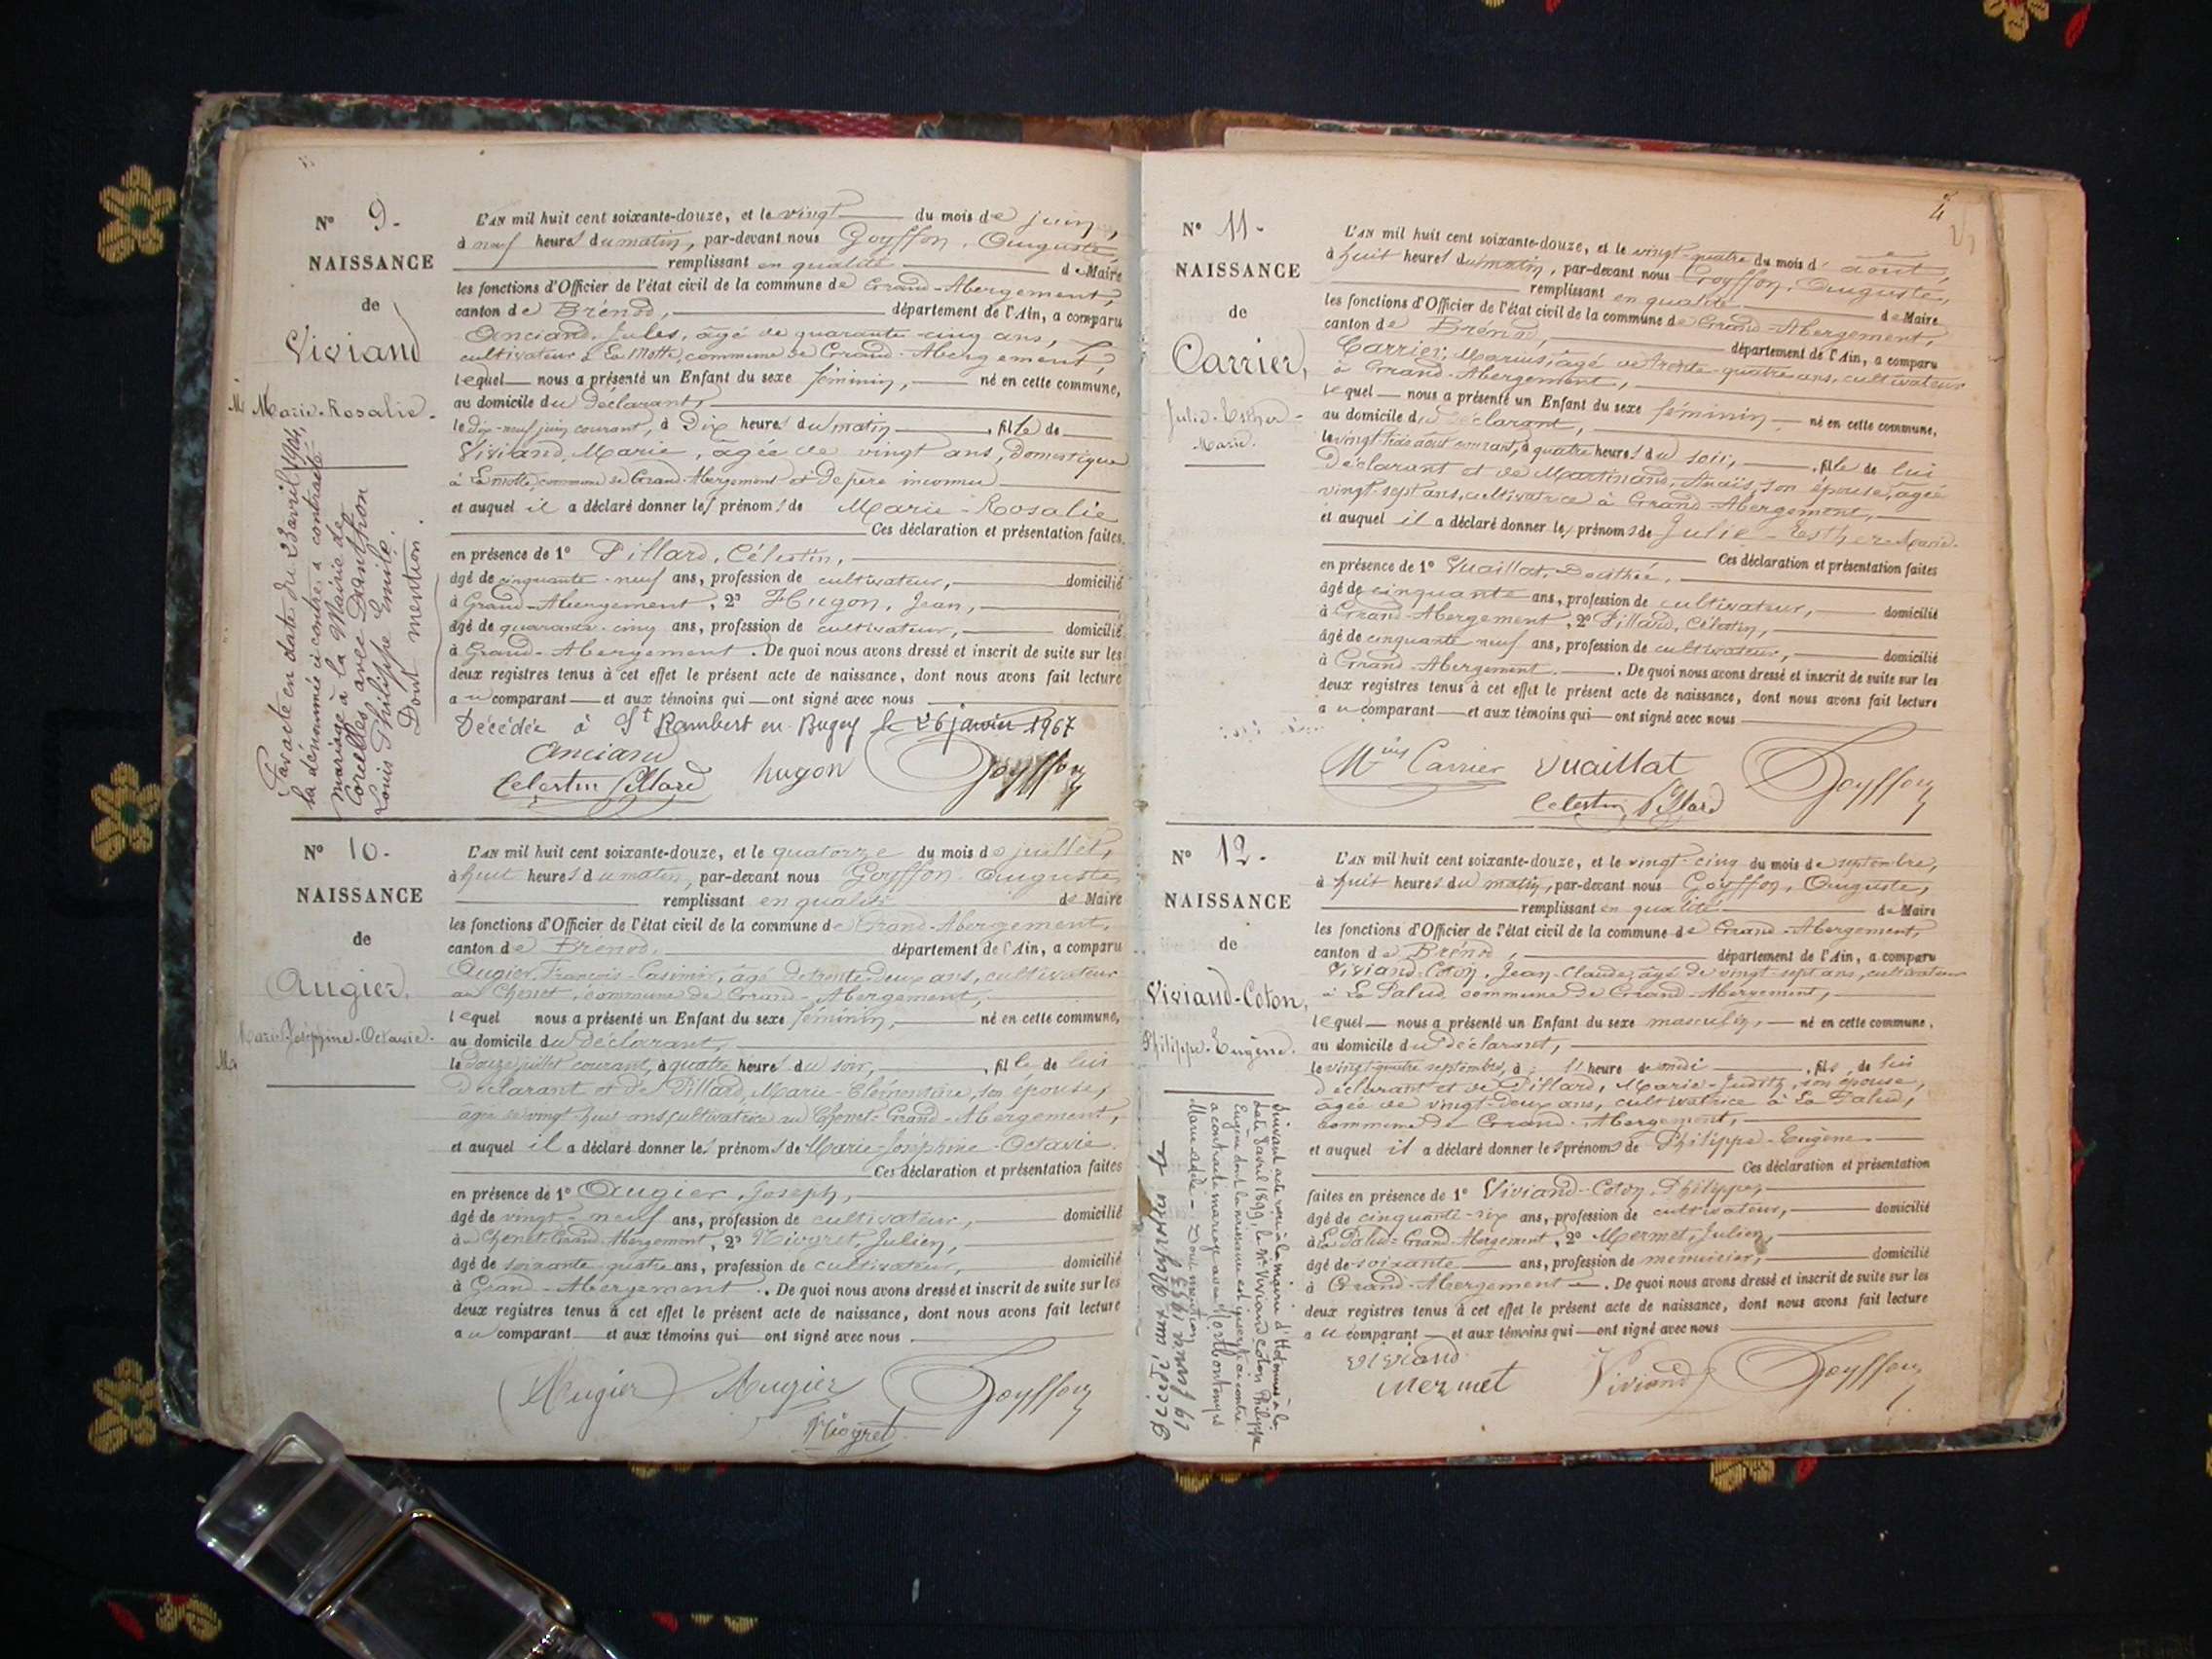 N° 9.
NAISSANCE
de
Viviand
Marie-Rosalie.
L'AN mil huit cent soixante-douze, et le vingt du mois de juin,
à neuf heures du matin, par-devant nous Goyffon, Auguste,
remplissant en qualité de Maire
les fonctions d'Officier de l'état civil de la commune de Grand-Abergement,
canton de Brénod, département de l'Ain, a comparu
Anciand, Jules, âgé de quarante-cinq ans,
cultivateur à La Motte, commune de Grand-Abergement,
lequel nous a présenté un Enfant du sexe féminin, né en cette commune,
au domicile du déclarant,
le dix-neuf juin courant, à Dix heures du matin, fille de
Viviand, Marie, âgée de vingt ans, Domestique
à La motte, commune de Grand-Abergement et de père inconnu
et auquel il a déclaré donner les prénoms de Marie-Rosalie
Ces déclaration et présentation faites
en présence de 1° Pillard, Célestin,
âgé de cinquante-neuf ans, profession de cultivateur, domicilié
à Grand-Abergement, 2° Hugon, Jean,
âgé de quarante-cinq ans, profession de cultivateur, domicilié
à Grand-Abergement. De quoi nous avons dressé et inscrit de suite sur les
deux registres tenus à cet effet le présent acte de naissance, dont nous avons fait lecture
au comparant et aux témoins qui ont signé avec nous
Décédée à St Rambert en Bugey le 26 janvier 1967
Anciand
Celestin Pillard hugon Goyffon
Par acte en date du 23 avril
la dénommée ci contre a contracté
mariage à la Mairie de
Corcelles avec
Louis Philippe Emile.
Dont mention.
N° 10.
NAISSANCE
de
Augier,
Marie-Joséphine-Octavie.
L'AN mil huit cent soixante-douze, et le quatorze du mois de juillet,
à huit heures du matin, par-devant nous Goyffon Auguste,
remplissant en qualité de Maire
les fonctions d'Officier de l'état civil de la commune de Grand-Abergement,
canton de Brénod, département de l'Ain, a comparu
Augier, François-Casimir, âgé de trente-deux ans, cultivateur
au Chenet, commune de Grand-Abergement,
lequel nous a présenté un Enfant du sexe féminin, né en cette commune,
au domicile du déclarant,
le douze juillet courant, à quatre heures du soir, fille de lui
Déclarant et de Pillard, Marie-Clémentine, son épouse,
âgée de vingt huit ans, cultivatrice au Chenet-Grand-Abergement,
et auquel il a déclaré donner les prénoms de Marie-Joséphine-Octavie.
Ces déclaration et présentation faites
en présence de 1° Augier, Joseph,
âgé de vingt-neuf ans, profession de cultivateur, domicilié
à Chenet-Grand-Abergement, 2° Niogret, Julien,
âgé de soixante-quatre ans, profession de cultivateur, domicilié
à Grand-Abergement. De quoi nous avons dressé et inscrit de suite sur les
deux registres tenus à cet effet le présent acte de naissance, dont nous avons fait lecture
au comparant et aux témoins qui ont signé avec nous
Augier Augier Goyffon
Niogret
4
N° 11.
NAISSANCE
de
Carrier,
Julie-Esther-
Marie.
L'AN mil huit cent soixante-douze, et le vingt-quatre du mois d'août,
à huit heures du matin, par-devant nous Goyffon, Auguste,
remplissant en qualité de Maire
les fonctions d'Officier de l'état civil de la commune de Grand-Abergement,
canton de Brénod, département de l'Ain, a comparu
Carrier, Marius, âgé de trente-quatre ans, cultivateur
à Grand-Abergement,
lequel nous a présenté un Enfant du sexe féminin, né en cette commune,
au domicile du déclarant,
le vingt trois août courant, à quatre heures du soir, fille de lui
Déclarant et de Martinand, Anaïs, son épouse, âgée
vingt-sept ans, cultivatrice à Grand-Abergement,
et auquel il a déclaré donner les prénoms de Julie-Esther-Marie.
Ces déclaration et présentation faites
en présence de 1° Vuaillat, Dosithée,
âgé de cinquante ans, profession de cultivateur, domicilié
à Grand-Abergement, 2° Pillard, Célestin,
âgé de cinquante neuf ans, profession de cultivateur, domicilié
à Grand-Abergement. De quoi nous avons dressé et inscrit de suite sur les
deux registres tenus à cet effet le présent acte de naissance, dont nous avons fait lecture
au comparant et aux témoins qui ont signé avec nous
Mius Carrier Vuaillat Goyffon
Celestin Pillard
N° 12.
NAISSANCE
de
Viviand-Coton,
Philippe-Eugène.
L'AN mil huit cent soixante-douze, et le vingt-cinq du mois de septembre,
à huit heures du matin, par-devant nous Goyffon, Auguste,
remplissant en qualité de Maire
les fonctions d'Officier de l'état civil de la commune de Grand-Abergement,
canton de Brénod, département de l'Ain, a comparu
Viviand-Coton, Jean-Claude, âgé de vingt-sept ans, cultivateur
à La Palud, commune de Grand-Abergement,
lequel nous a présenté un Enfant du sexe masculin, né en cette commune,
au domicile du déclarant,
le vingt-quatre septembre, à heure de midi, fils de lui
déclarant et de Pillard, Marie-Judith, son épouse,
âgée de vingt-deux ans, cultivatrice à La Palud,
commune de Grand-Abergement,
et auquel il a déclaré donner les prénoms de Philippe-Eugène
Ces déclaration et présentation
faites en présence de 1° Viviand-Coton, Philippe,
âgé de cinquante-six ans, profession de cultivateur, domicilié
à La Palud-Grand-Abergement, 2° Mermet, Julien,
âgé de soixante ans, profession de menuisier, domicilié
à Grand-Abergement. De quoi nous avons dressé et inscrit de suite sur les
deux registres tenus à cet effet le présent acte de naissance, dont nous avons fait lecture
au comparant et aux témoins qui ont signé avec nous
viviand
Mermet Viviand Goyffon
Suivant acte reçu à la mairie d'Hotonnes à la
date 8 avril 1899, le Mr Viviand Coton Philippe
Eugène dont la naissance est ci contre
a contracté mariage avec
Marie Adèle - Dont mention
Décédé aux Neyrolles le
19 janvier 1953